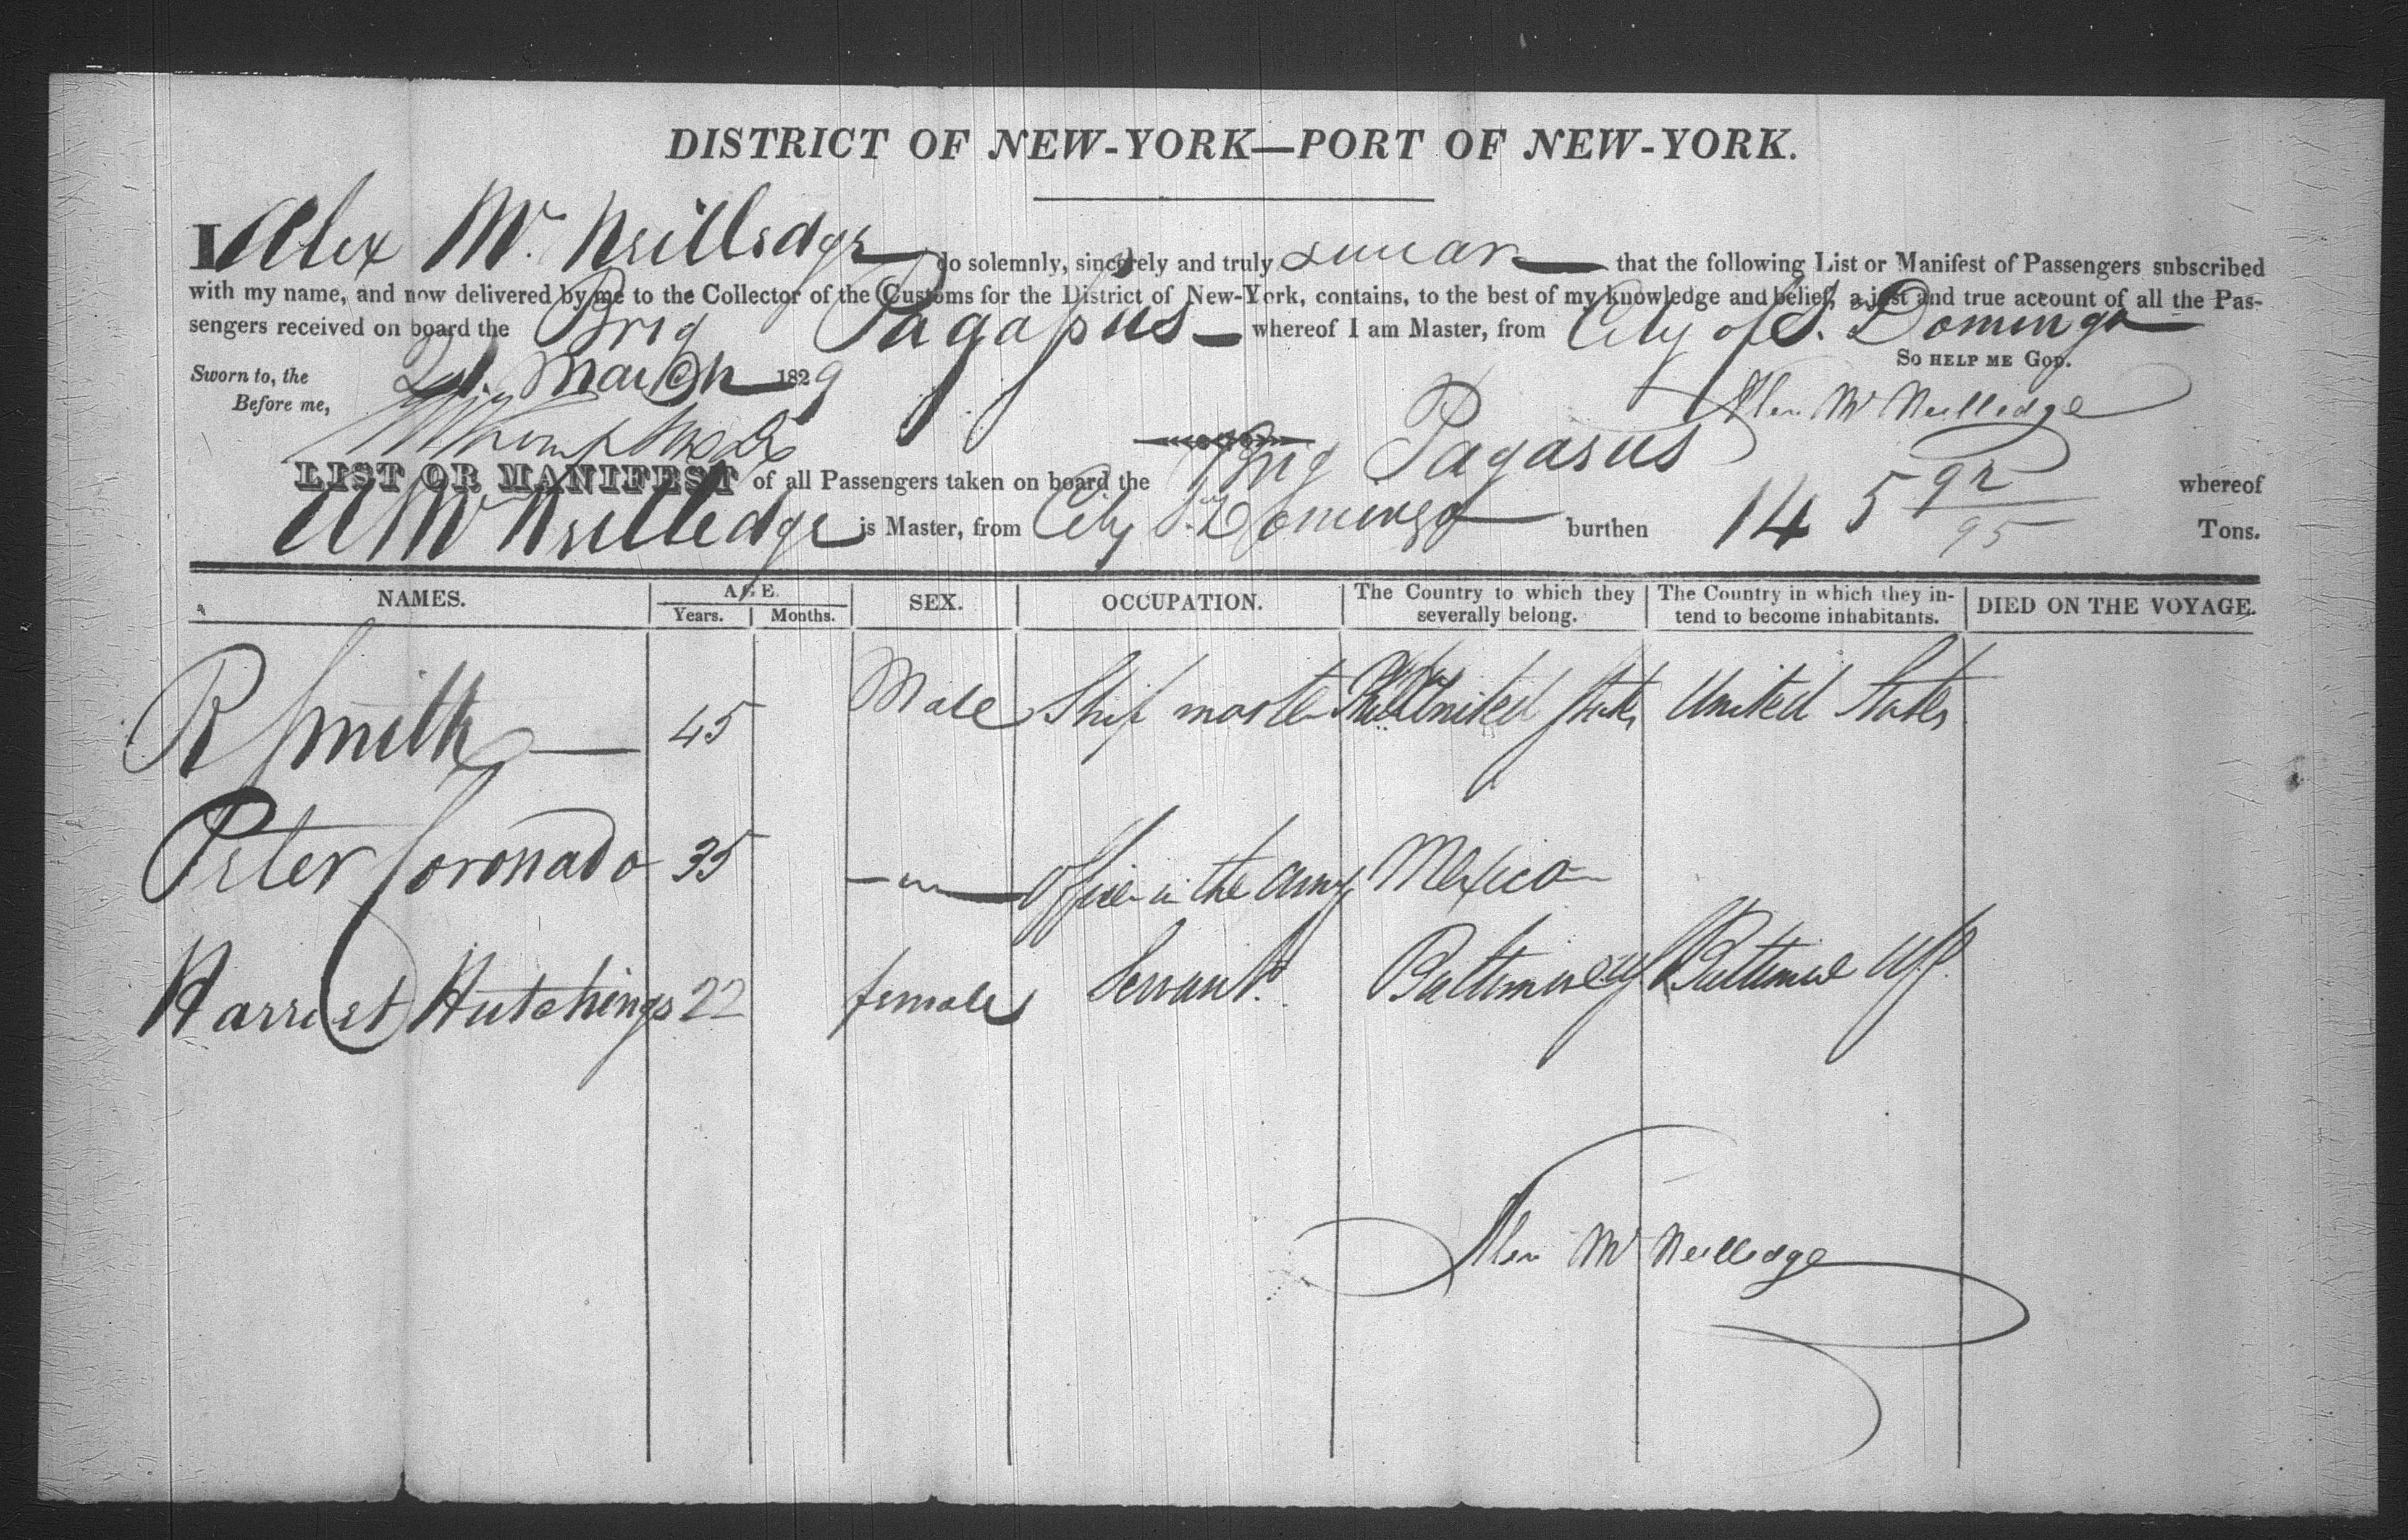 DISTRICT OF NEW-YORK—PORT OF NEW-YORK.
I Alex Mc. Neilledge do solemnly, sincerely and truly swear that the following List or Manifest of Passengers subscribed
with my name, and now delivered by me to the Collector of the Customs for the District of New-York, contains, to the best of my knowledge and belief, a just and true account of all the Pas-
sengers received on board the Brig Pagasus whereof I am Master, from City of S. Domingo
SO HELP ME GOD.
Sworn to, the March 1829
Before me,
Alex Mc Neilledge
LIST OR MANIFEST of all Passengers taken on board the Brig Pagasus whereof
A Mc Neilledge is Master, from City St. Domingo burthen 145 92/95 Tons.
NAMES. AGE. SEX. OCCUPATION. The Country to which they severally belong. The Country in which they intend to become inhabitants. DIED ON THE VOYAGE.
Years. Months.
R Smith 45 Male Ship master United States United States
Peter Coronado 35 Officer in the army Mexico
Harriet Hutchings 22 female Servant Baltimore Baltimore US.
Alex Mc Neilledge